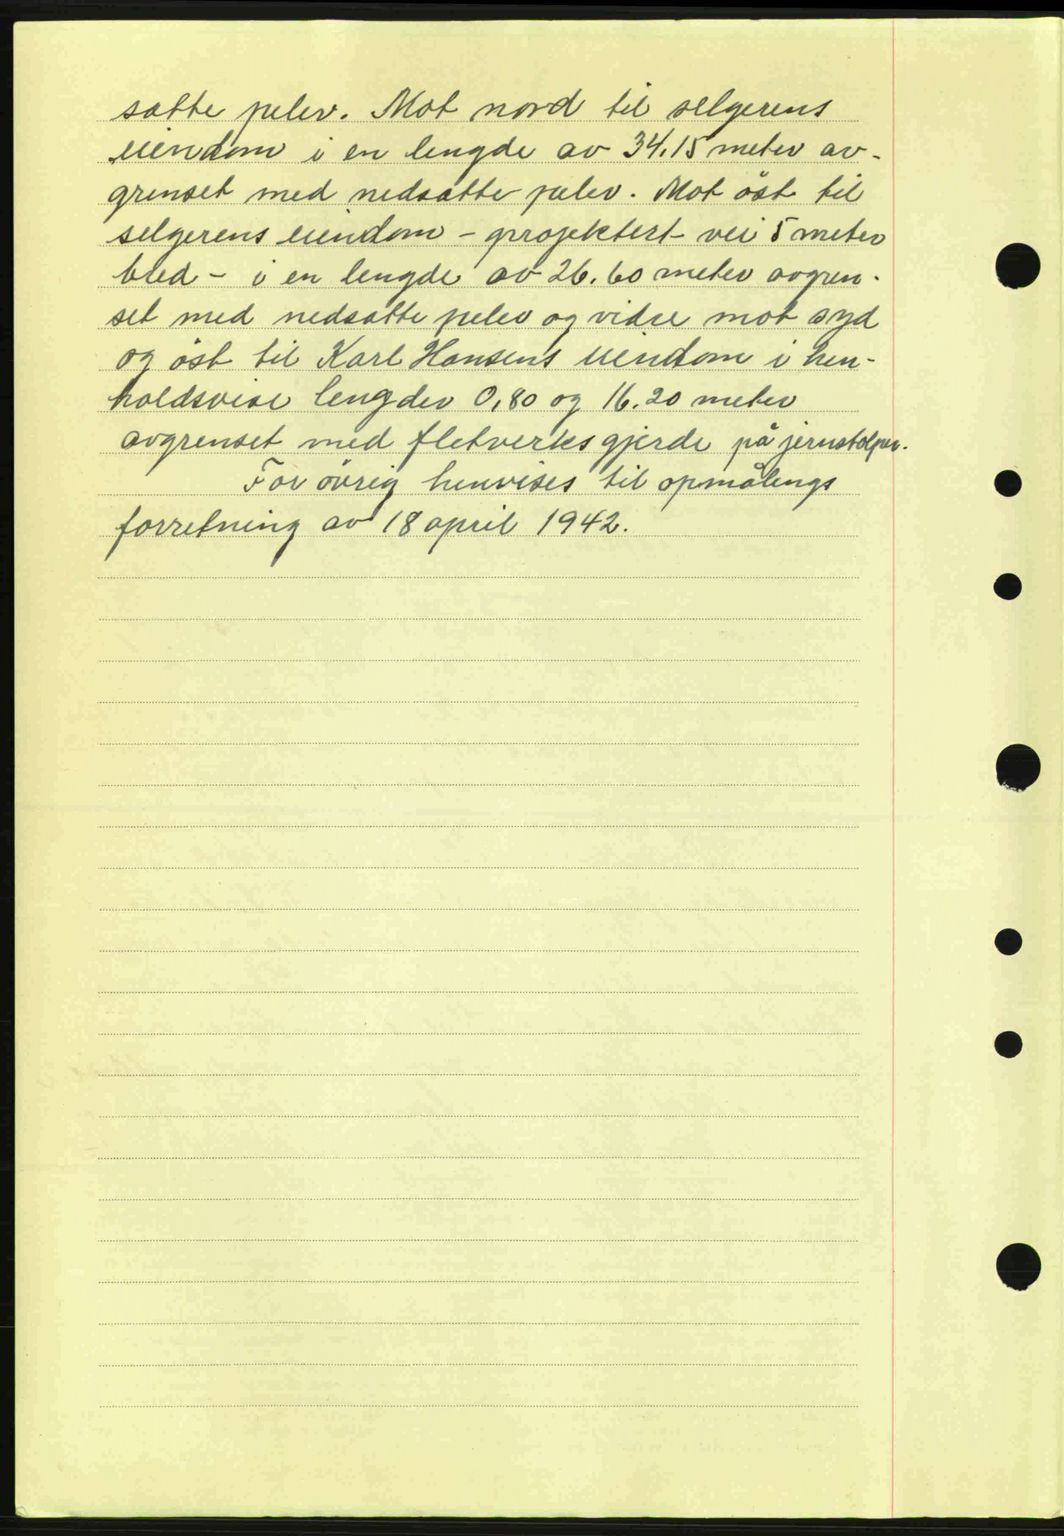 satte peler. Mot nord til selgerens
eiendom i en lengde av 34.15 meter av-
grenset med nedsatte peler. Mot öst til
selgerens eiendom - projektert vei 5 meter
bred - i en lengde av 26.60 meter avgren-
set med nedsatte peler og vidre mot syd
og öst til Karl Hansens eiendom i hen-
holdsvise lengder 0,80 og 16.20 meter
avgrenset med fletverksgjerde på jernstolper.
For övrig henvises til opmålings
forretning av 18 april 1942.